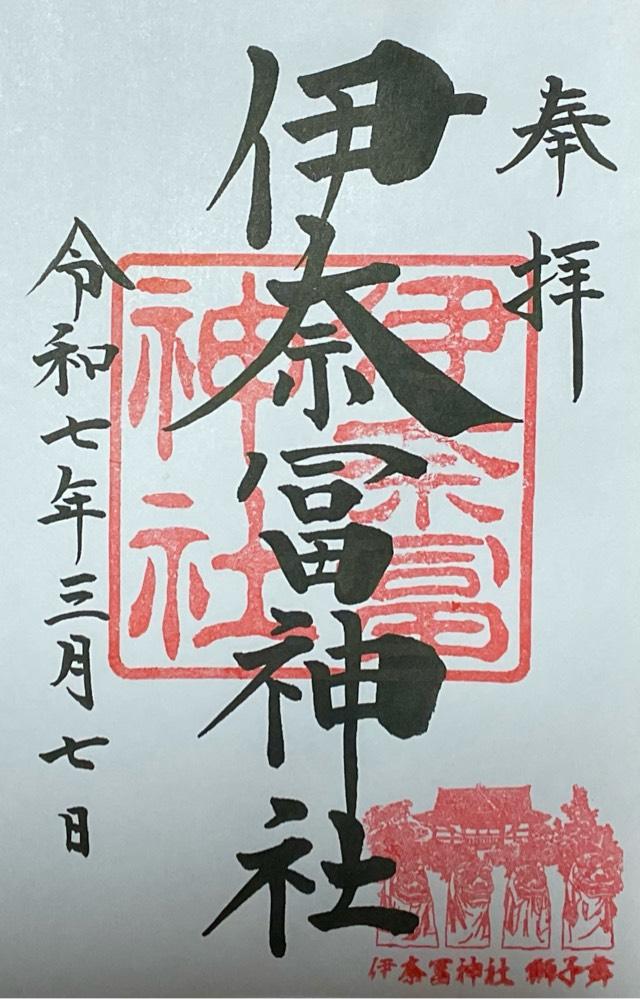 奉拝
伊奈冨神社
伊奈冨神社
令和七年三月七日
伊奈冨神社 獅子舞